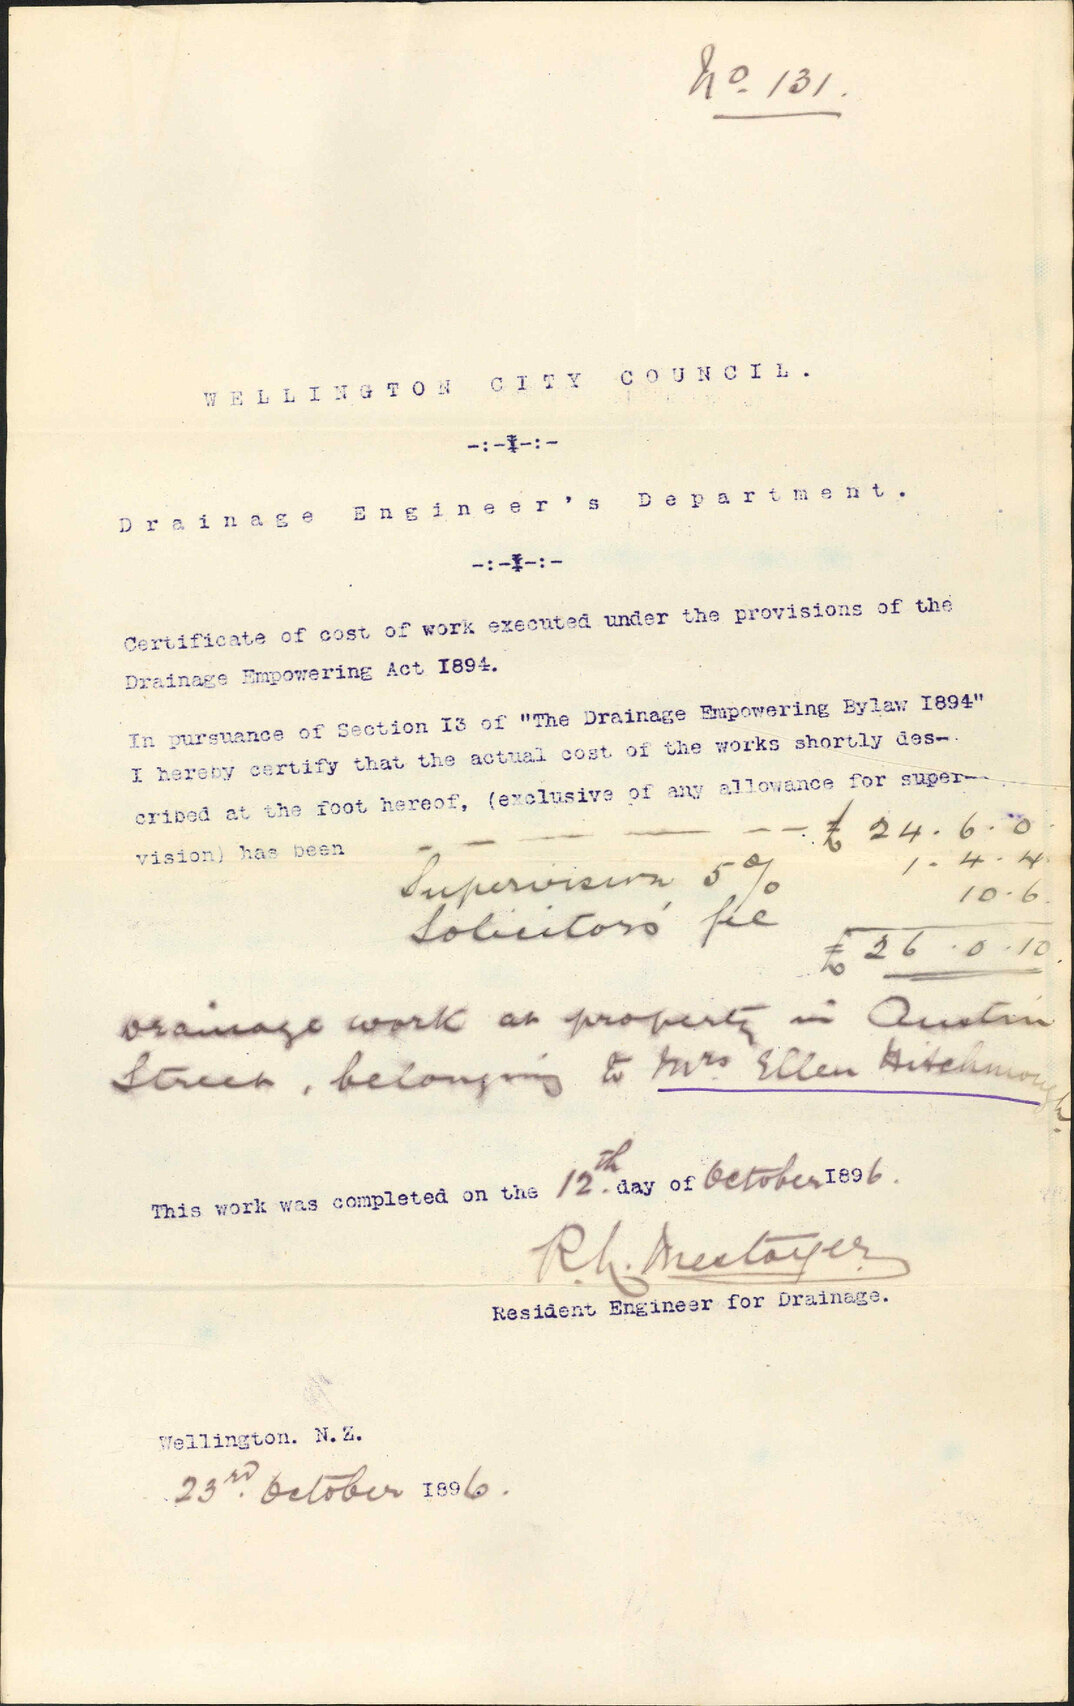 No. 131.
WELLINGTON CITY COUNCIL.
-:-I-:-
Drainage Engineer's Department.
-:-I-:-
Certificate of cost of work executed under the provisions of the
Drainage Empowering Act I894.
In pursuance of Section I3 of "The Drainage Empowering Bylaw I894"
I hereby certify that the actual cost of the works shortly des-
cribed at the foot hereof, (exclusive of any allowance for super-
vision) has been - - - - - - £ 24. 6. 0
Supervision 5% 1. 4. 4
Solicitors' fee 10. 6.
£ 26. 0. 10.
Drainage work at property in Austin
Street, belonging to Mrs Ellen Hitchmough.
This work was completed on the 12th. day of October I896.
R. L. Mestayer
Resident Engineer for Drainage.
Wellington. N.Z.
23rd. October I896.